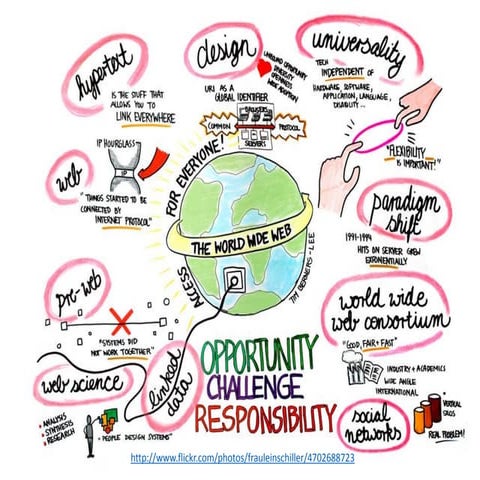 hypertext
IS THE STUFF THAT
ALLOWS YOU TO
LINK EVERYWHERE
design
UNBOUND OPPORTUNITY
DIVERSITY
OPENNESS
WIDE ADOPTION
URI AS A
GLOBAL IDENTIFIER
BROWSERS
COMMON
PROTOCOL
SERVERS
universality
TECH
INDEPENDENT OF
HARDWARE, SOFTWARE,
APPLICATION, LANGUAGE,
DISABILITY...
"FLEXIBILITY
IS IMPORTANT!"
web
IP HOURGLASS
IP
"THINGS STARTED TO BE
CONNECTED BY
INTERNET PROTOCOL"
ACCESS
FOR EVERYONE!
THE WORLD WIDE WEB
TIM BERNERS-LEE
paradigm
shift
1991-1994
HITS ON SERVER GREW
EXPONENTIALLY
pre-web
"SYSTEMS DID
NOT WORK TOGETHER"
world wide
web consortium
"GOOD, FAIR + FAST"
INDUSTRY + ACADEMICS
WIDE ANGLE
INTERNATIONAL
web science
• ANALYSIS
• SYNTHESIS
• RESEARCH
• PEOPLE DESIGN SYSTEMS"
linked
data
OPPORTUNITY
CHALLENGE
RESPONSIBILITY
social
networks
VERTICAL
SILOS
REAL PROBLEM!
http://www.flickr.com/photos/frauleinschiller/4702688723